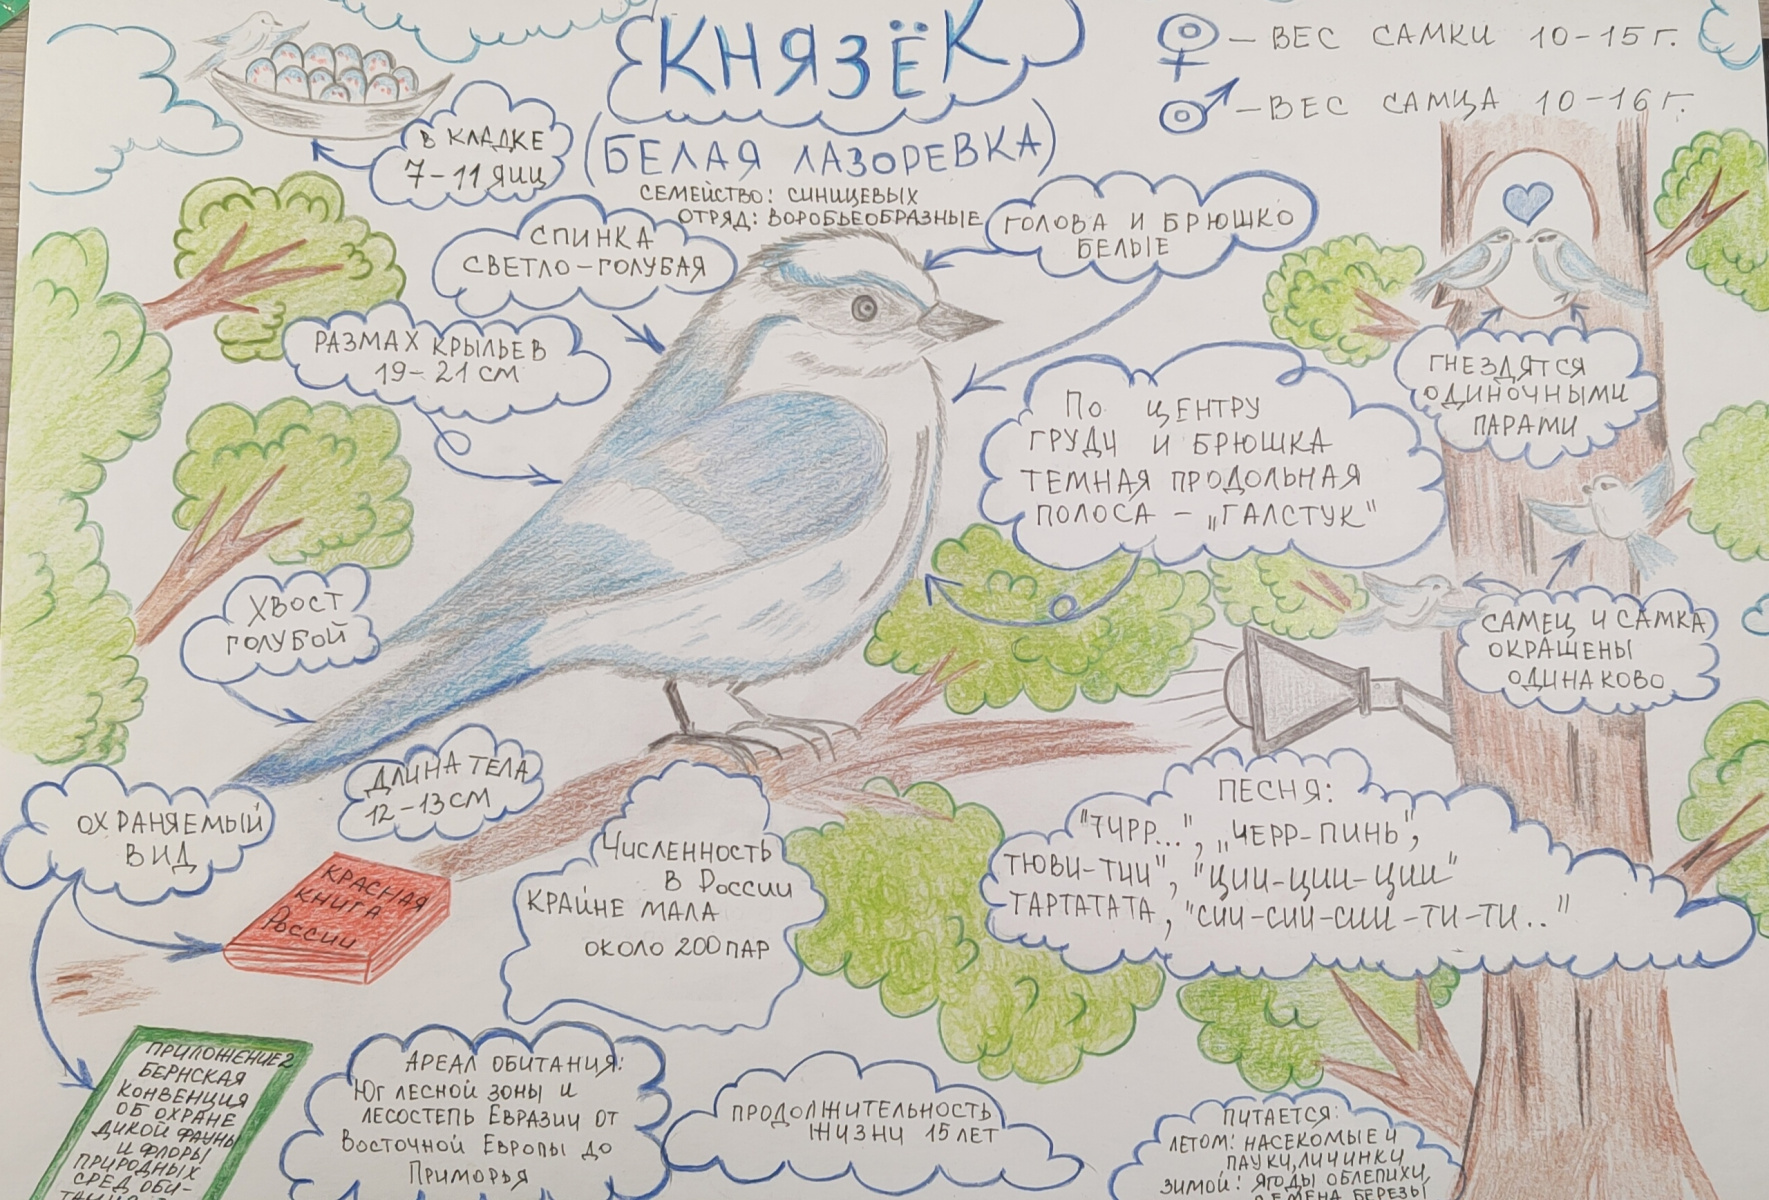 КНЯЗЁК
(БЕЛАЯ ЛАЗОРЕВКА)
СЕМЕЙСТВО: СИНИЦЕВЫХ
ОТРЯД: ВОРОБЬЕОБРАЗНЫЕ
— ВЕС САМКИ 10-15 Г.
— ВЕС САМЦА 10-16 Г.
В КЛАДКЕ
7-11 ЯИЦ
СПИНКА
СВЕТЛО-ГОЛУБАЯ
ГОЛОВА И БРЮШКО
БЕЛЫЕ
РАЗМАХ КРЫЛЬЕВ
19-21 СМ
ГНЕЗДЯТСЯ
ОДИНОЧНЫМИ
ПАРАМИ
ПО ЦЕНТРУ
ГРУДИ И БРЮШКА
ТЕМНАЯ ПРОДОЛЬНАЯ
ПОЛОСА - „ГАЛСТУК"
ХВОСТ
ГОЛУБОЙ
САМЕЦ И САМКА
ОКРАШЕНЫ
ОДИНАКОВО
ДЛИНА ТЕЛА
12-13 СМ
ОХРАНЯЕМЫЙ
ВИД
КРАСНАЯ
КНИГА
РОССИИ
ЧИСЛЕННОСТЬ
В РОССИИ
КРАЙНЕ МАЛА
ОКОЛО 200 ПАР
ПЕСНЯ:
"ТЧРР...", „ЧЕРР-ПИНЬ",
ТЮВИ-ТИИ", "ЦИИ-ЦИИ-ЦИИ"
ТАРТАТАТА, "СИИ-СИИ-СИИ-ТИ-ТИ.."
ПРИЛОЖЕНИЕ 2
БЕРНСКАЯ
КОНВЕНЦИЯ
ОБ ОХРАНЕ
ДИКОЙ ФАУНЫ
И ФЛОРЫ
ПРИРОДНЫХ
СРЕД ОБИ-
АРЕАЛ ОБИТАНИЯ:
ЮГ ЛЕСНОЙ ЗОНЫ И
ЛЕСОСТЕПЬ ЕВРАЗИИ ОТ
ВОСТОЧНОЙ ЕВРОПЫ ДО
ПРИМОРЬЯ
ПРОДОЛЖИТЕЛЬНОСТЬ
ЖИЗНИ 15 ЛЕТ
ПИТАЕТСЯ:
ЛЕТОМ: НАСЕКОМЫЕ И
ПАУКИ, ЛИЧИНКИ
ЗИМОЙ: ЯГОДЫ ОБЛЕПИХИ,
СЕМЕНА БЕРЕЗЫ